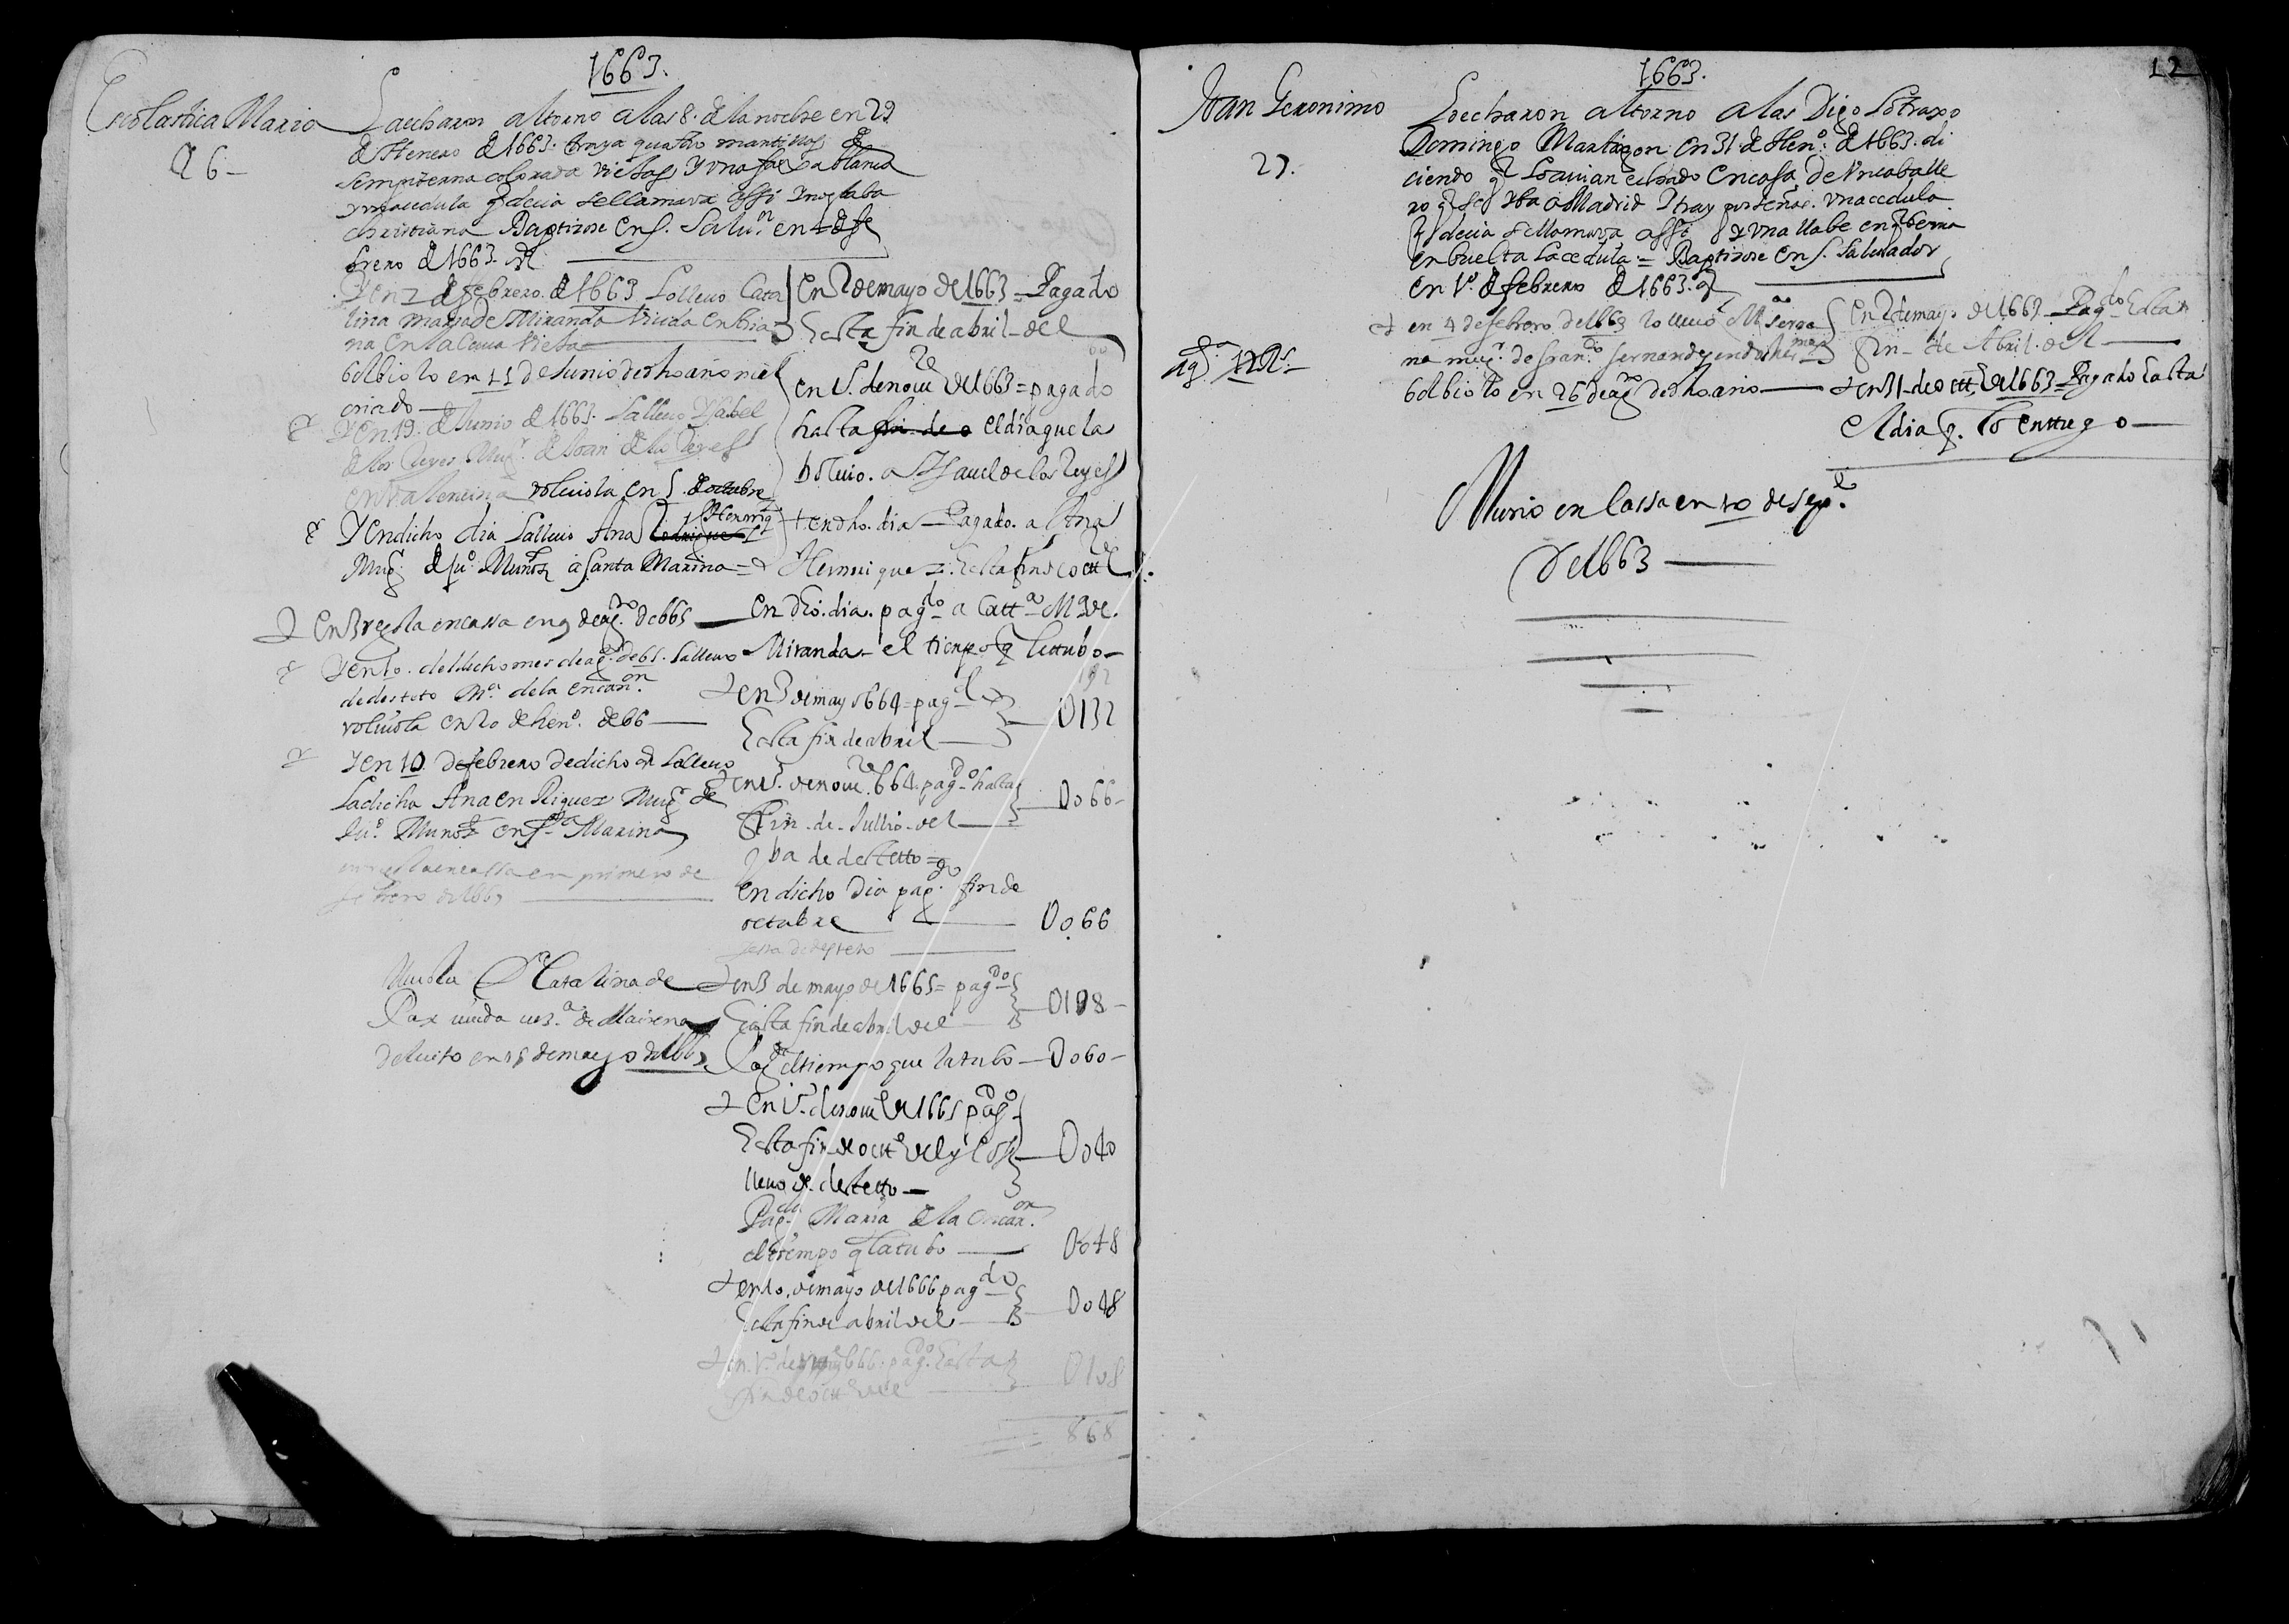 1663.
Escolastica Maria
26-
La echaron al torno a las 8. de la noche en 29
de Henero de 1663. traya quatro mantillas de
sempiterna colorada viejas y una faxa blanca
y una cedula q decia se llamava assi y no estaba
christiana Baptizose en S. Salu.or en 1 de fe
brero de 1663.
Y en 2 de febrero. de 1663 la lleuo Cata
lina maria de Miranda viuda en tria
na en la Caua vieja
bolbiola en 11 de Junio de dho año mal
criado
Y en 19. de Junio de 1663. la lleuo Ysabel
de los Reyes Mug.r de Joan de
en valencina voluiola en 5. de octubre
Y en dicho dia la lleuo Ana Rodrigues Henrriq
Mug.r de Ju.o Muñoz a santa Marina =
En3regola en cassa en 9 de ag.to de 665
Y en 10. del dicho mes de ag.to de 65. la lleuo
de desteto M.a de la encar.on
voluiola en 20 de hen.o de 66
Y en 10 de febrero de dicho la lleuo
la dicha Ana enRiquez Mug.r de
Ju.o Muñoz en S.ta Marina
en cassa en primero de
febrero de 1667
lleuola D.a Catalina de
Paz viuda vez.a de Mairena
deluito en 15 de mayo de 1667
en 2 de mayo de 1663 = Pagado
hasta fin de abril del
en 5. de nou.re de 1663 = pagado
hasta fin de o el dia que la
boluio. a Ysauel de los Reyes
+ en dho. dia Pagado. a Ana
Henrriquez. hasta fin de octt.e
en dho. dia. pag.do a Catt.a M.a de.
Miranda el tiempo q la tubo
192
+ en 3 de mayo 664 = pag.do
hasta fin de abril 0132
+ en 5. de nou.re 664. pag.do hasta
fin de Jullio del 0066
Yba de destetto =
en dicho dia pag.do fin de
octubre 0066
+ en 3 de mayo de 1665 = pag.do
hasta fin de abril del 0198
Pag.do el tiempo que la tubo 0060
+ en 1.o de nou.e de 1665 pag.do
hasta fin de octt.e del y
lleuo de destetto 0040
Pag.do Maria de la encar.on
el tiempo q la tubo 0048
+ en 10. de mayo de 1666 pag.do
hasta fin de abril del 0048
+ en 1.o de 666. pag.do hasta
fin de octt.e del 0108
868
1663.
12
Juan Geronimo
27.
Lo echaron al torno a las Digo lo traxo
Domingo Martagon en 31 de Hen.o de 1663. di
ciendo q lo auian echado en casa de Un caballe
ro q se yba a Madrid Tray por señas. una cedula
q decia se llamava assi y una llabe en q benia
enbuelta la cedula = Baptizose en S. Saluador
en 1.o de febrero de 1663.
en 4 de febrero de 1663 lo lleuo
na mug.r de fran.co fernandez en dos her.mas
bolbiolo en 26 de ag.to de dho. ano
en 2 de mayo de 1663. Pag.do hasta
fin de Abril. del
+ en 31 de octt.e de 1663 = Pagado hasta
el dia q. lo enttrego
Murio en cassa en 10 de sep.e
de 1663